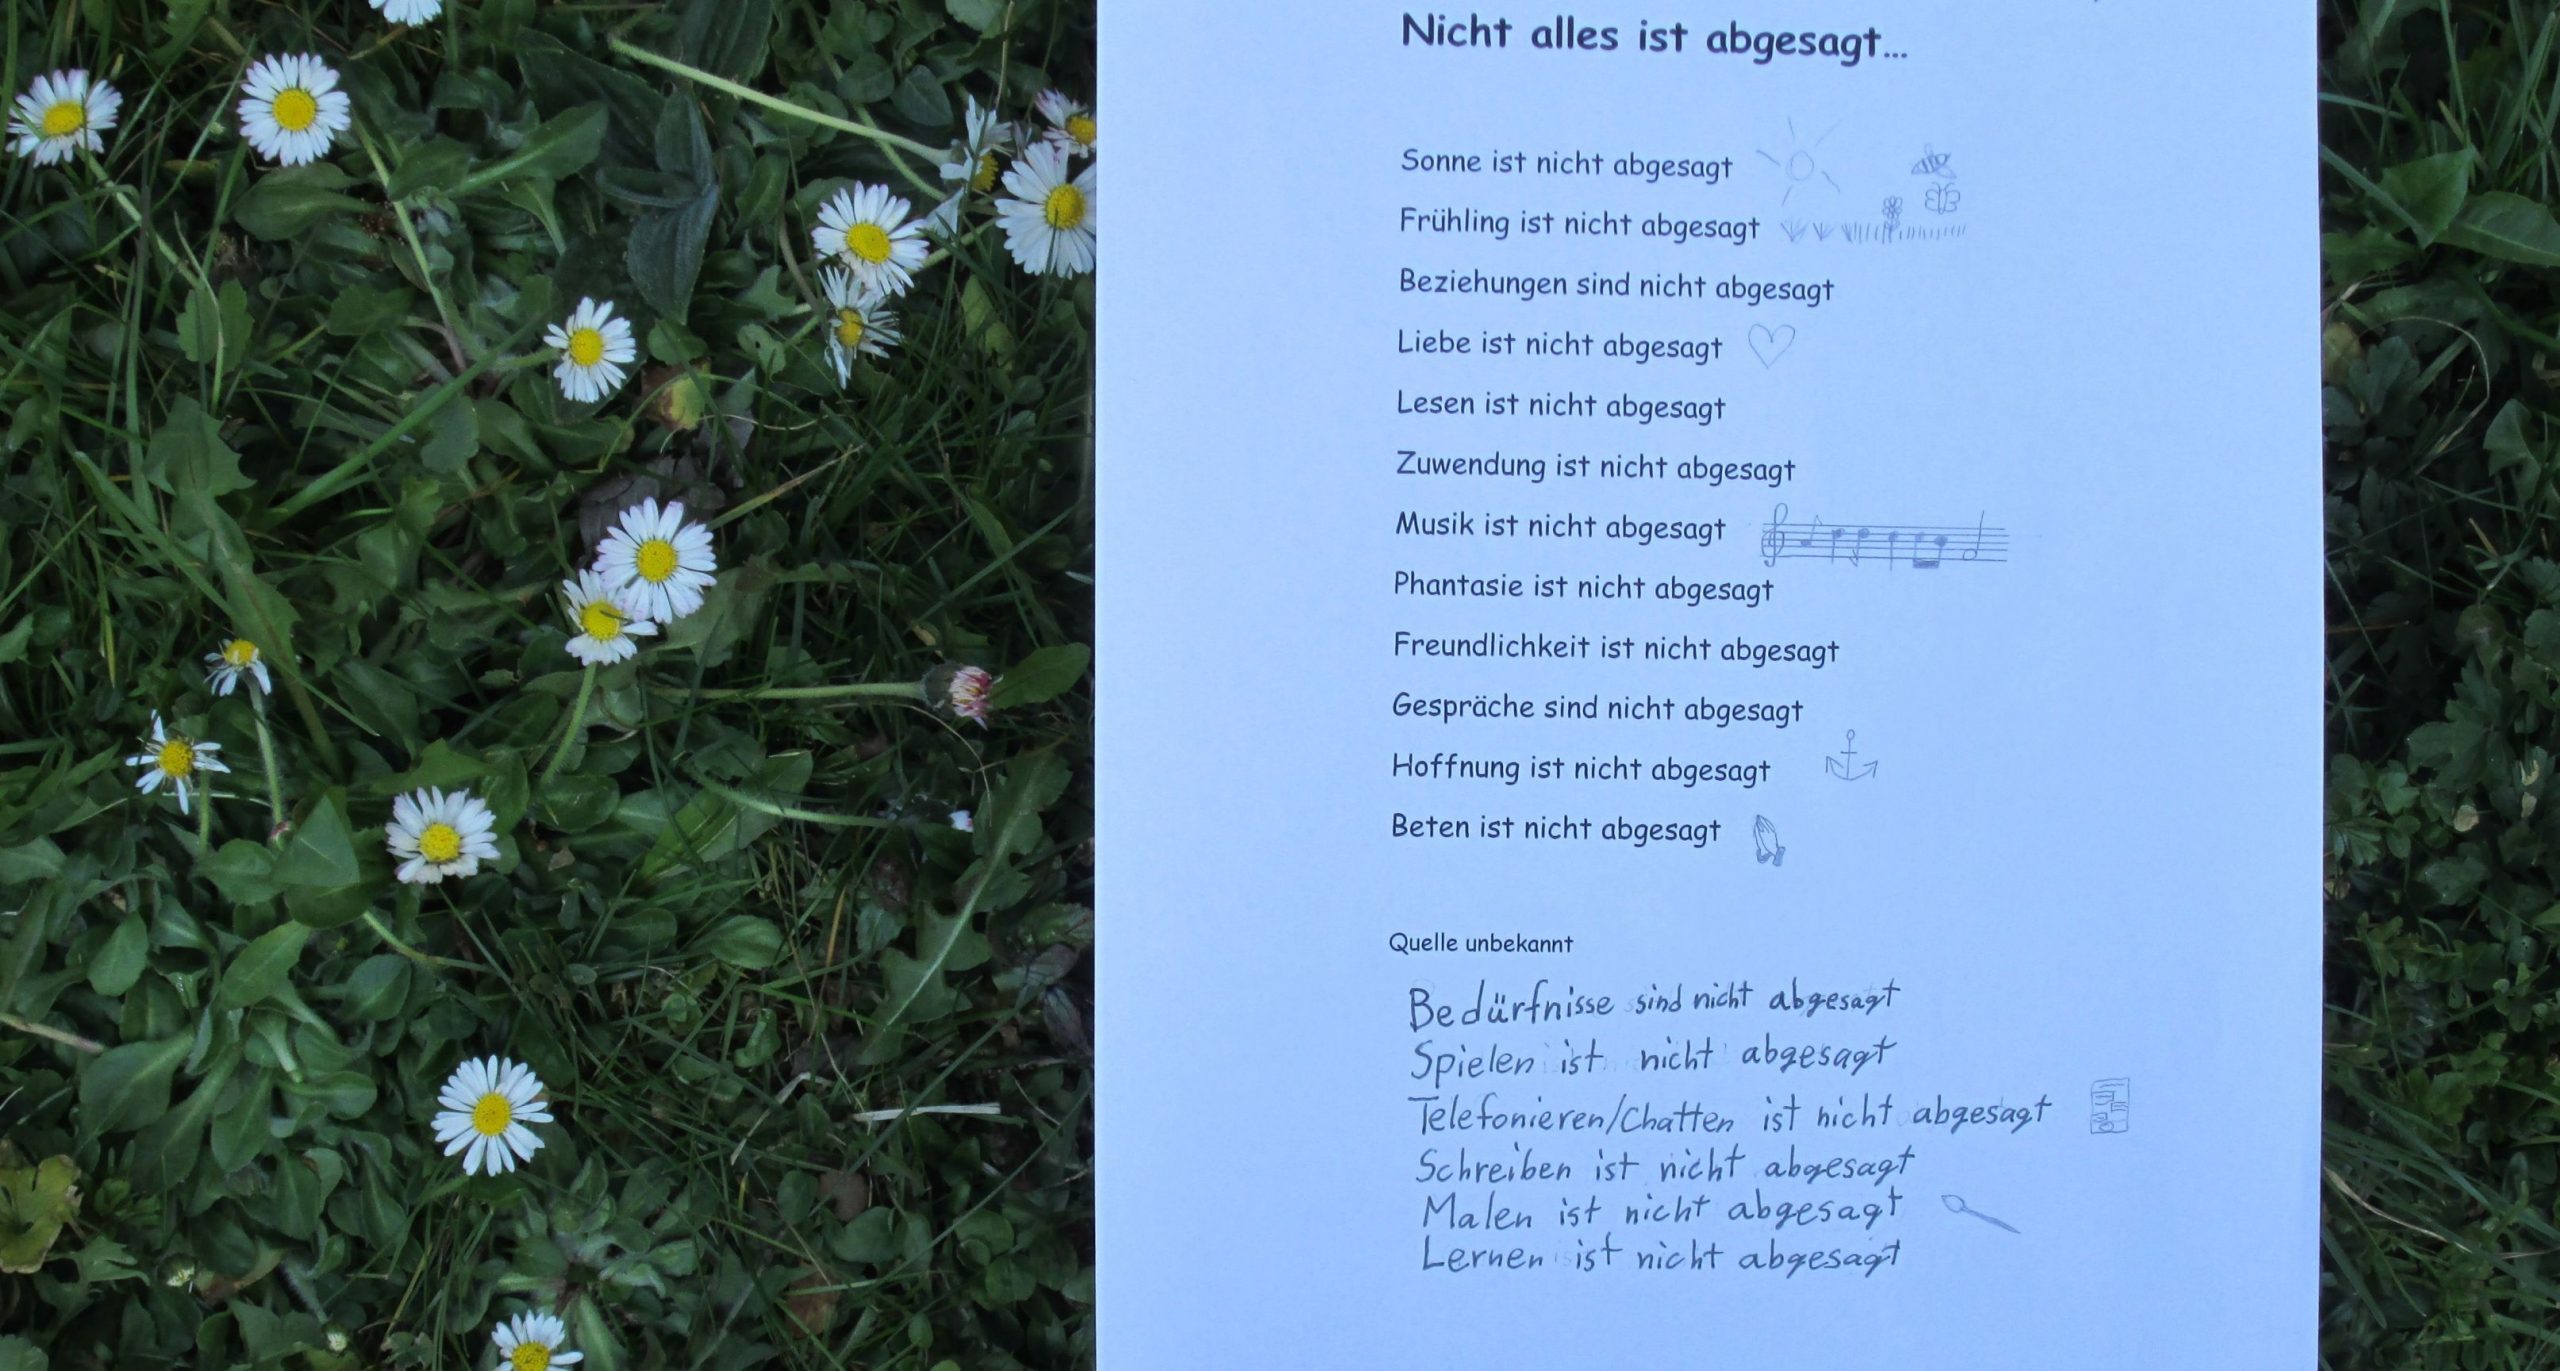 Nicht alles ist abgesagt...
Sonne ist nicht abgesagt
Frühling ist nicht abgesagt
Beziehungen sind nicht abgesagt
Liebe ist nicht abgesagt
Lesen ist nicht abgesagt
Zuwendung ist nicht abgesagt
Musik ist nicht abgesagt
Phantasie ist nicht abgesagt
Freundlichkeit ist nicht abgesagt
Gespräche sind nicht abgesagt
Hoffnung ist nicht abgesagt
Beten ist nicht abgesagt
Quelle unbekannt
Bedürfnisse sind nicht abgesagt
Spielen ist nicht abgesagt
Telefonieren/Chatten ist nicht abgesagt
Schreiben ist nicht abgesagt
Malen ist nicht abgesagt
Lernen ist nicht abgesagt